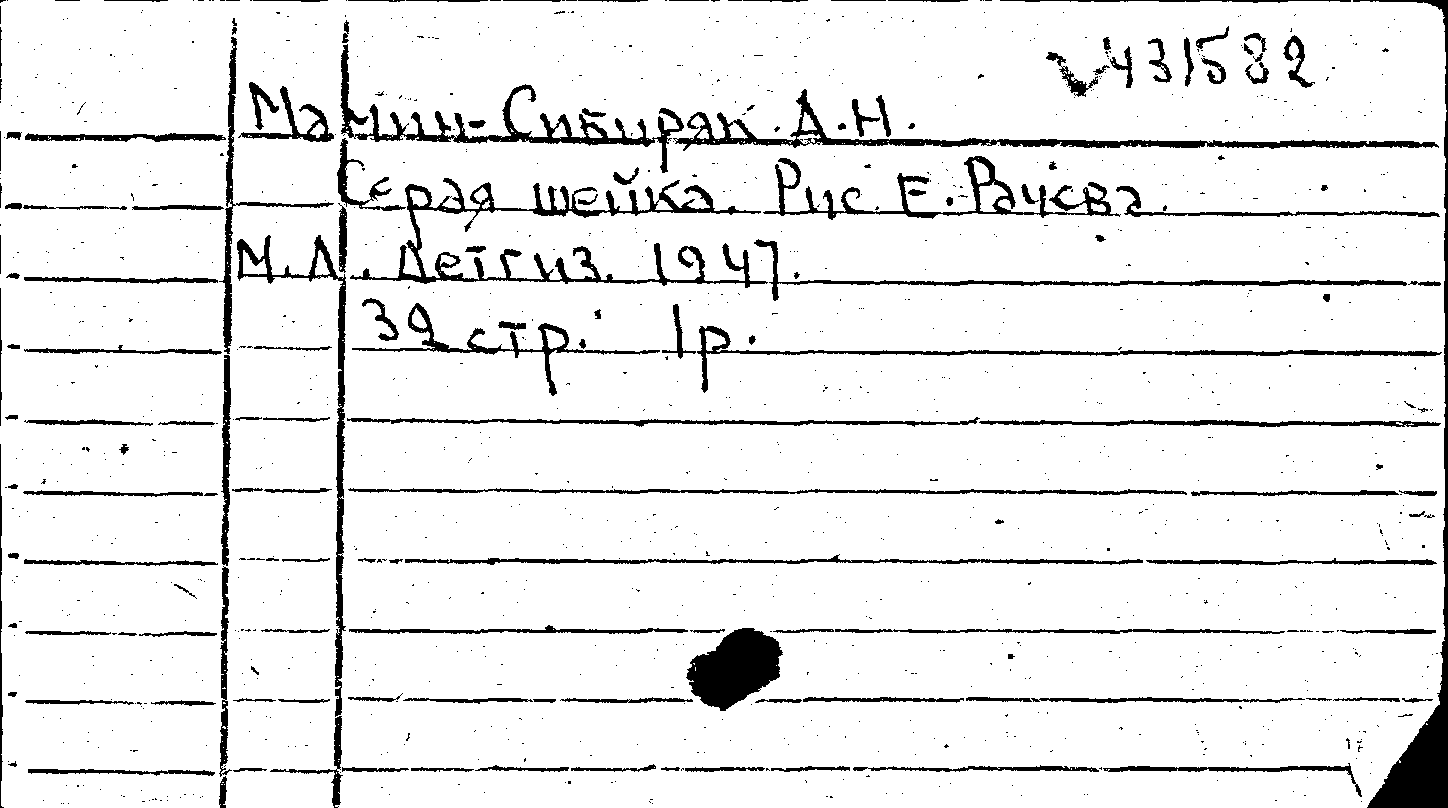 431582
Мамин-Сибиряк. Д.Н.
Серая шейка. Рис. Е. Рачева.
М.Л. Детгиз. 1947.
32 стр. 1р.